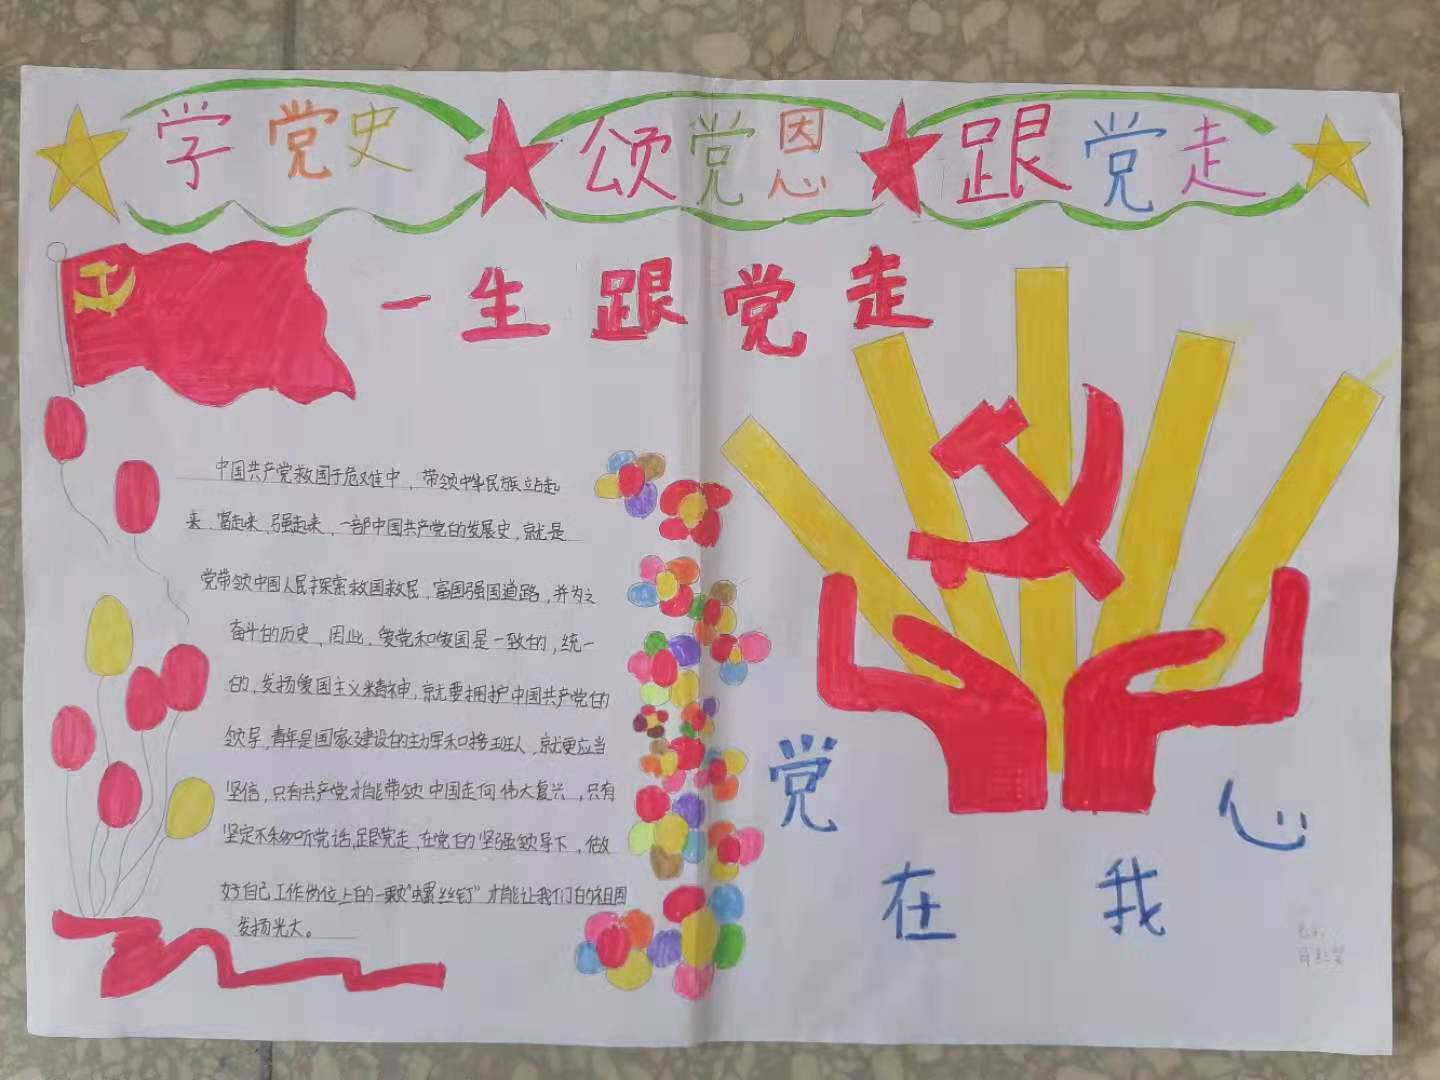 学党史 颂党恩 跟党走
一生跟党走
中国共产党救国于危难中，带领中华民族站起
来、富起来、强起来，一部中国共产党的发展史，就是
党带领中国人民探索救国救民，富国强国道路，并为之
奋斗的历史，因此，爱党和爱国是一致的，统一
的，发扬爱国主义精神，就要拥护中国共产党的
领导，青年是国家建设的主力军和接班人，就更应当
坚信，只有共产党才能带领中国走向伟大复兴，只有
坚定不移听党话，跟党走，在党的坚强领导下，做
好自己工作岗位上的一颗“螺丝钉”才能让我们的祖国
发扬光大。
党在我心